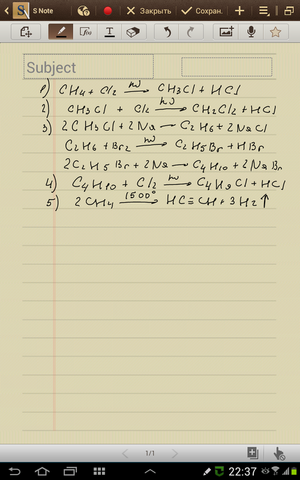 S Note
Закрыть
Сохран.
Subject
1) CH4 + Cl2 hν→ CH3Cl + HCl
2) CH3Cl + Cl2 hν→ CH2Cl2 + HCl
3) 2CH3Cl + 2Na → C2H6 + 2NaCl
C2H6 + Br2 hν→ C2H5Br + HBr
2C2H5Br + 2Na → C4H10 + 2NaBr
4) C4H10 + Cl2 hν→ C4H9Cl + HCl
5) 2CH4 1500°→ HC≡CH + 3H2↑
1/1
22:37